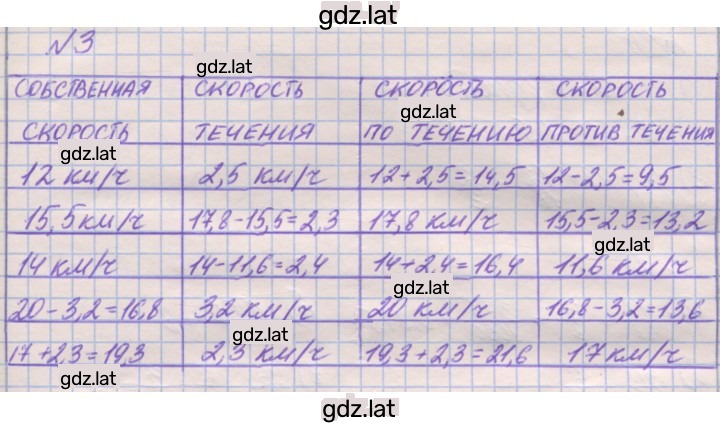 gdz.lat
№3
gdz.lat
СОБСТВЕННАЯ СКОРОСТЬ СКОРОСТЬ СКОРОСТЬ
gdz.lat
СКОРОСТЬ ТЕЧЕНИЯ ПО ТЕЧЕНИЮ ПРОТИВ ТЕЧЕНИЯ
gdz.lat
12 км/ч 2,5 км/ч 12+2,5=14,5 12-2,5=9,5
15,5км/ч 17,8-15,5=2,3 17,8 км/ч 15,5-2,3=13,2
gdz.lat
14 км/ч 14-11,6=2,4 14+2.4=16,4 11,6 км/ч
gdz.lat
20-3,2=16,8 3,2 км/ч 20 км/ч 16,8-3,2=13,6
gdz.lat
17+2,3=19,3 2,3 км/ч 19,3+2,3=21,6 17 км/ч
gdz.lat
gdz.lat